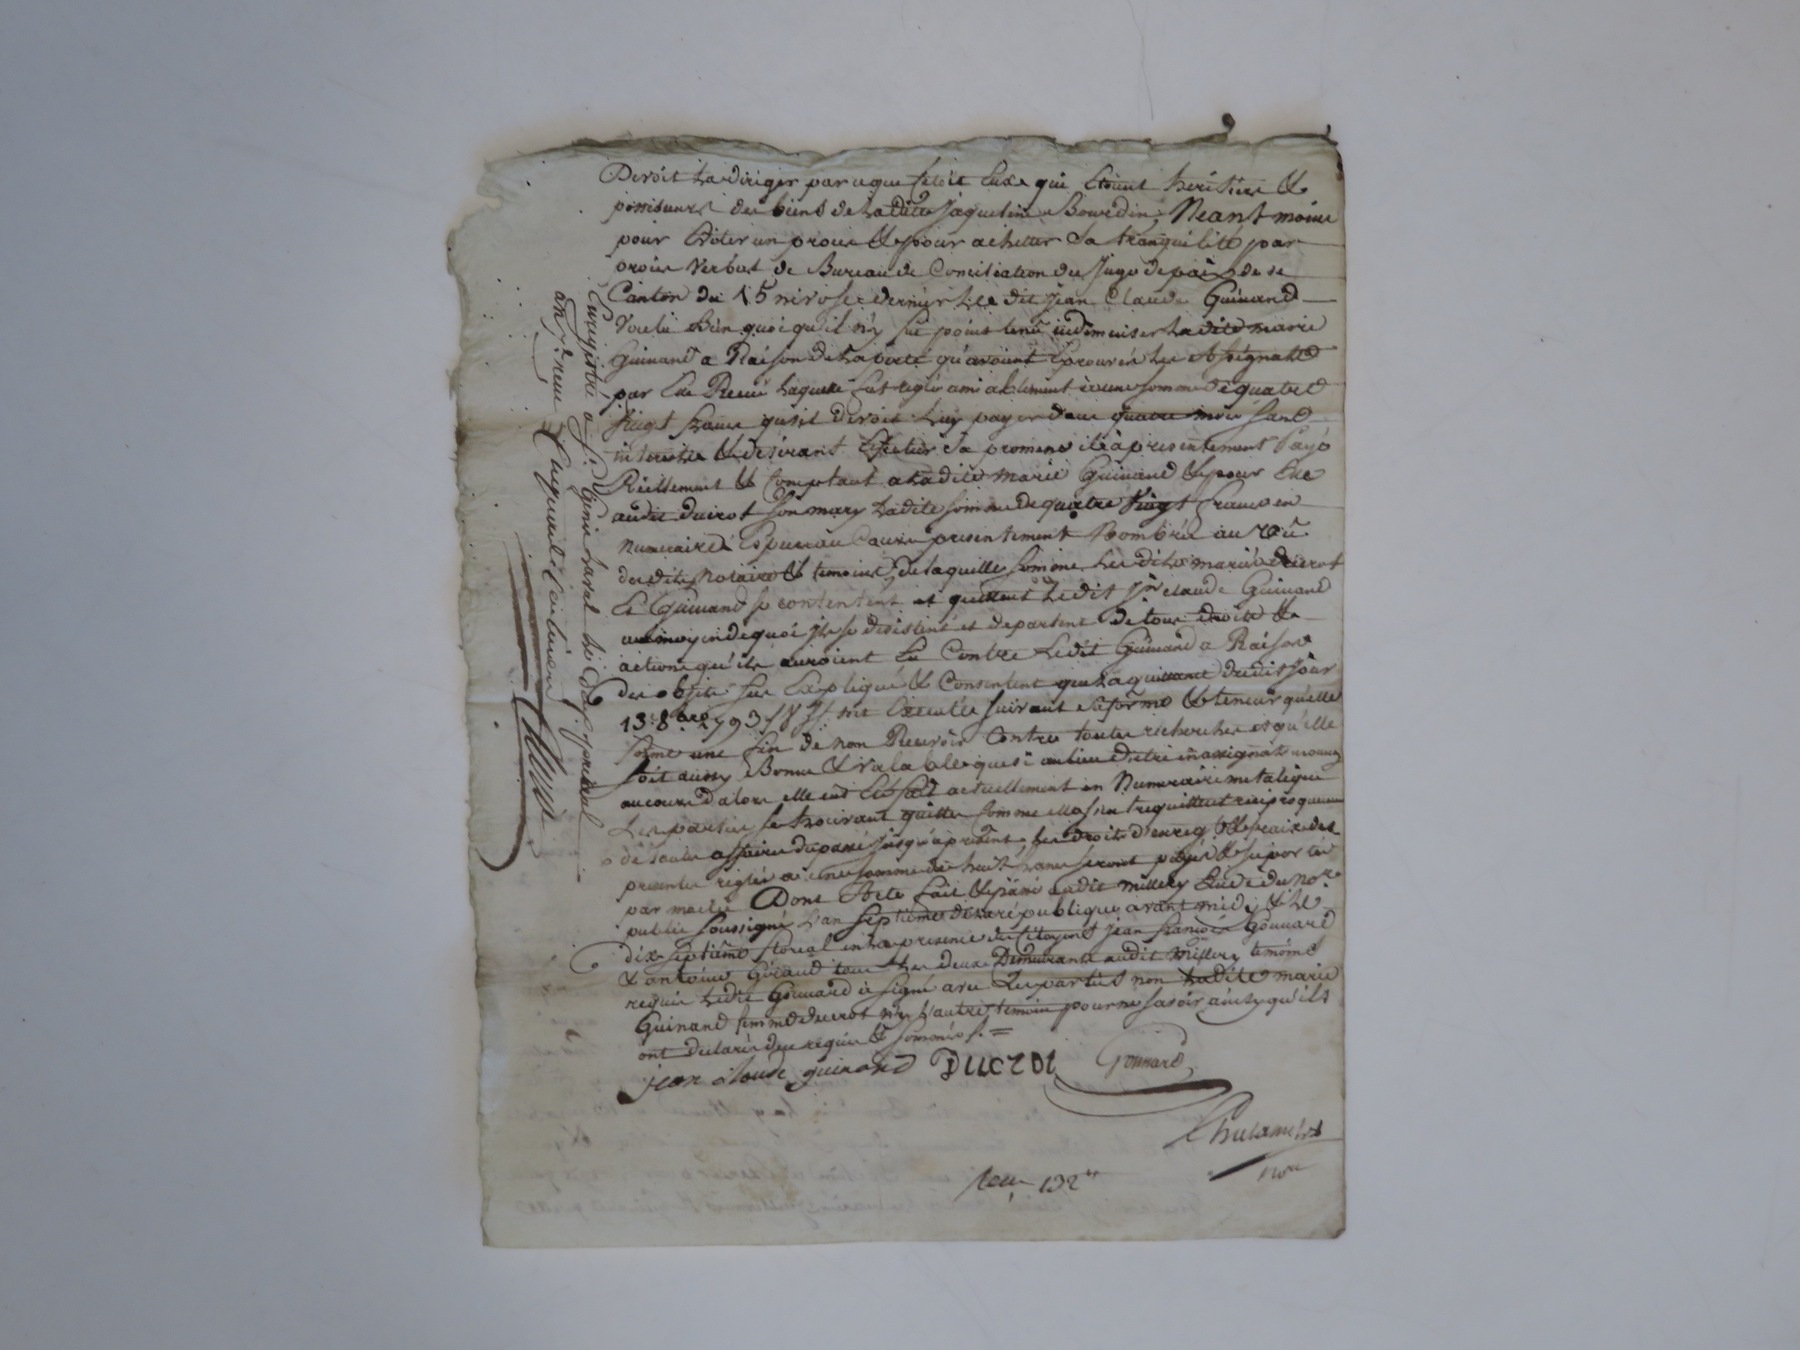 Devoit la diriger par ce que cetoit Luxe qui Etoient heritiers &
possesseurs des biens de la ditte Jaqueline Bourdin, Neantmoins
pour Eviter un proces & pour achetter Sa tranquilité par
proces Verbal de Bureau de Conciliation du Juge de paix de ce
Canton du 15 nivose dernier Le dit Jean Claude Guinand
Voulu bien quoi qu'il n'y fut point tenu indemniser La dite marie
Guinand a Raison de La perte qu'avoient Eprouvés Les Assignats
par Elle Recus Laquelle fut reglé amiablement a une somme de quatre
Vingt francs qu'il devoit Luy payer dans quatre mois sans
interests & desirant Effectuer Sa promesse il a presentement Payé
Réellement & Comptant a La dite marie Guinand & pour Elle
audit ducrot Son mary La dite somme de quatre Vingt francs en
numeraire Espece au Cours presentement Nombrée au vû
desdits Notaire & temoins, de laquelle somme Les dits mariés ducrot
Et Guinand se contentent et quittent Le dit Jn claude Guinand
au moyen de quoi ils se desistent et departent de tous droits &
actions qu'ils auroient Eu Contre Ledit Guinand a Raison
des objets sus Expliqués & Consentent que La quittance dudit jour
13 8bre 1793 /V.S/ soit Executée suivant sa forme & teneur qu'elle
forme une fin de non Recevoir Contre toutes recherches et qu'elle
soit aussy Bonne & valable que si au lieu d'etre en assignats
au cours d'alors elle eut Eté fait actuellement en Numeraire metalique
Les parties se trouvant quittes Comme elles s'en tiennent quittes reciproquement
de toutes affaires du passé jusqu'a present, Les droits d'enreg. & frais des
presentes reglés a une somme de huit francs seront payés & suportés
par moitié Dont Acte fait & passé audit millery Etude du No.re
public soussigné L'an Septieme de La république avant midy & Le
dix Septieme floreal en La presence des Citoyens jean francois Gonnard
& antoine Giraud tous Les deux Demeurants audit Millery temoins
requis Ledit Gonnard a signé avec Les parties non Ladite marie
Guinand femme ducrot ny L'autre temoin pour ne savoir ainsy qu'ils
ont declarés de ce requis & sommés /. =
jean cloude guinand DUCROT Gonnard
Nore
Enregistré a St Genis Laval Le 26 floreal
an 7 reçu